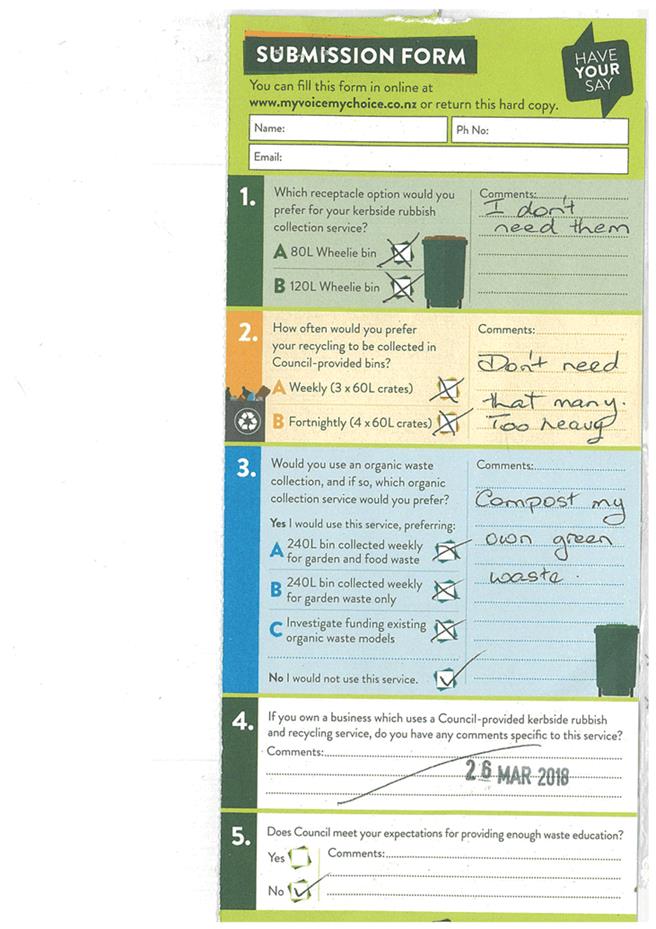 SUBMISSION FORM
HAVE
YOUR
SAY
You can fill this form in online at
www.myvoicemychoice.co.nz or return this hard copy.
Name:
Ph No:
Email:
1.
Which receptacle option would you
prefer for your kerbside rubbish
collection service?
A 80L Wheelie bin
B 120L Wheelie bin
Comments:
I don't
need them
2.
How often would you prefer
your recycling to be collected in
Council-provided bins?
A Weekly (3 x 60L crates)
B Fortnightly (4 x 60L crates)
Comments:
Don't need
that many.
Too heavy
3.
Would you use an organic waste
collection, and if so, which organic
collection service would you prefer?
Yes I would use this service, preferring:
A 240L bin collected weekly
for garden and food waste
B 240L bin collected weekly
for garden waste only
C Investigate funding existing
organic waste models
No I would not use this service.
Comments:
Compost my
own green
waste.
4.
If you own a business which uses a Council-provided kerbside rubbish
and recycling service, do you have any comments specific to this service?
Comments:
26 MAR 2018
5.
Does Council meet your expectations for providing enough waste education?
Yes
No
Comments: